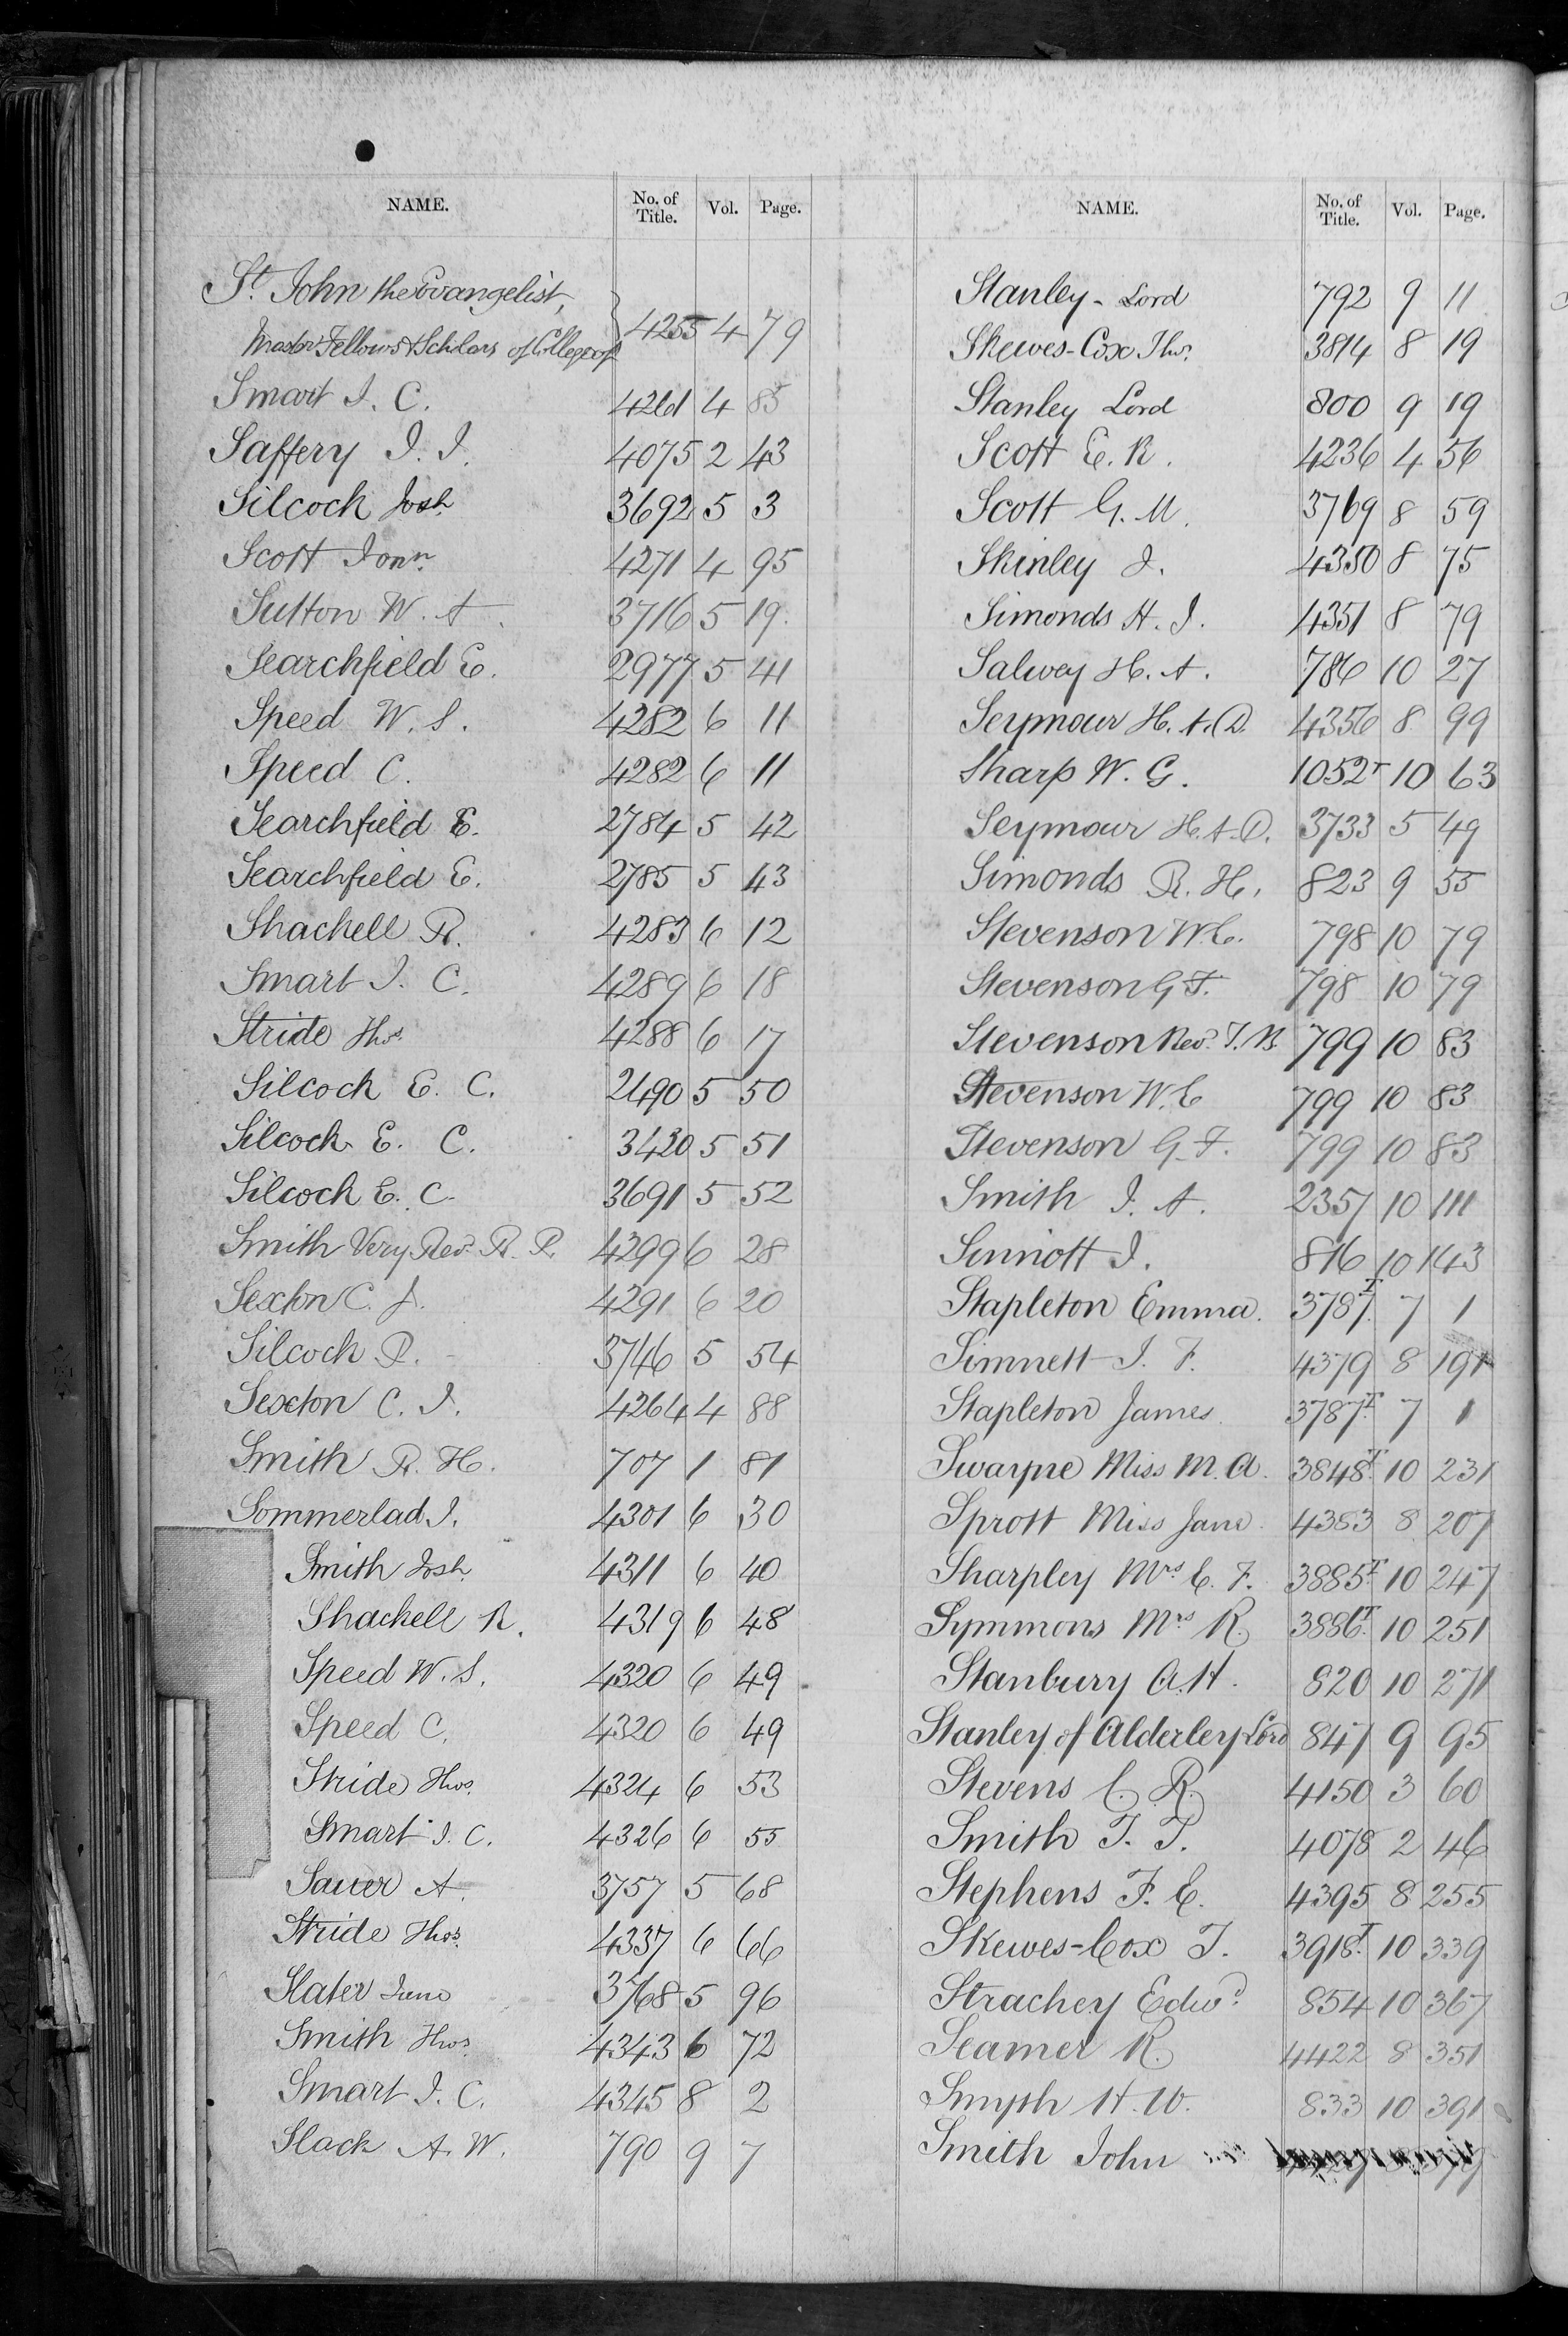 NAME. No. of Title. Vol. Page.
St. John the Evangelist,
Master Fellows & Scholars of College of 4255 4 79
Smart J. C. 4261 4 85
Saffery J. J. 4075 2 43
Silcock Josh. 3692 5 3
Scott Jonn. 4271 4 95
Sutton W. A. 3716 5 19.
Searchfield E. 2977 5 41
Speed W. S. 4282 6 11
Speed C. 4282 6 11
Searchfield E. 2784 5 42
Searchfield E. 2785 5 43
Shackell R. 4283 6 12
Smart J. C. 4289 6 18
Stride Thos. 4288 6 17
Silcock E. C. 2490 5 50
Silcock E. C. 3420 5 51
Silcock E. C. 3691 5 52
Smith Very Rev. R. P. 4299 6 28
Sexton C. J. 4291 6 20
Silcock R. 3746 5 54
Sexton C. J. 4264 4 88
Smith R. H. 707 1 81
Sommerlad J. 4301 6 30
Smith Josh. 4311 6 40
Shackell R. 4319 6 48
Speed W. S. 4320 6 49
Speed C. 4320 6 49
Stride Thos. 4324 6 53
Smart J. C. 4326 6 55
Sauer A. 3757 5 68
Stride Thos. 4337 6 66
Slater Jane 3768 5 96
Smith Thos. 4343 6 72
Smart J. C. 4345 8 2
Slack A. W. 790 9 7
NAME. No. of Title. Vol. Page.
Stanley - Lord 792 9 11
Skewes-Cox Thos. 3814 8 19
Stanley Lord 800 9 19
Scott E. R. 4236 4 56
Scott G. M. 3769 8 59
Skinley J. 4350 8 75
Simonds H. J. 4351 8 79
Salwey H. A. 786 10 27
Seymour H. A. D. 4356 8 99
Sharp W. G. 1052T 10 63
Seymour H. A. D. 3733 5 49
Simonds R. H. 823 9 55
Stevenson W. E. 798 10 79
Stevenson G. F. 798 10 79
Stevenson Rev. T. B. 799 10 83
Stevenson W. E 799 10 83
Stevenson G. F. 799 10 83
Smith J. A. 2357 10 111
Sinnott J. 816 10 143
Stapleton Emma. 3787T 7 1
Simnett J. F. 4379 8 191
Stapleton James. 3787T 7 1
Swarpne Miss M. A. 3848T 10 231
Sprott Miss Jane. 4383 8 207
Sharpley Mrs E. F. 3885T 10 247
Symmons Mrs R. 3886T 10 251
Stanbury A. H. 820 10 271
Stanley of Alderley Lord 847 9 95
Stevens C. R. 4150 3 60
Smith T. T. 4078 2 46
Stephens F. E. 4395 8 255
Skewes-Cox T. 3918T 10 339
Strachey Edwd. 854 10 367
Seamer R. 4422 8 351
Smyth H. W. 833 10 391
Smith John